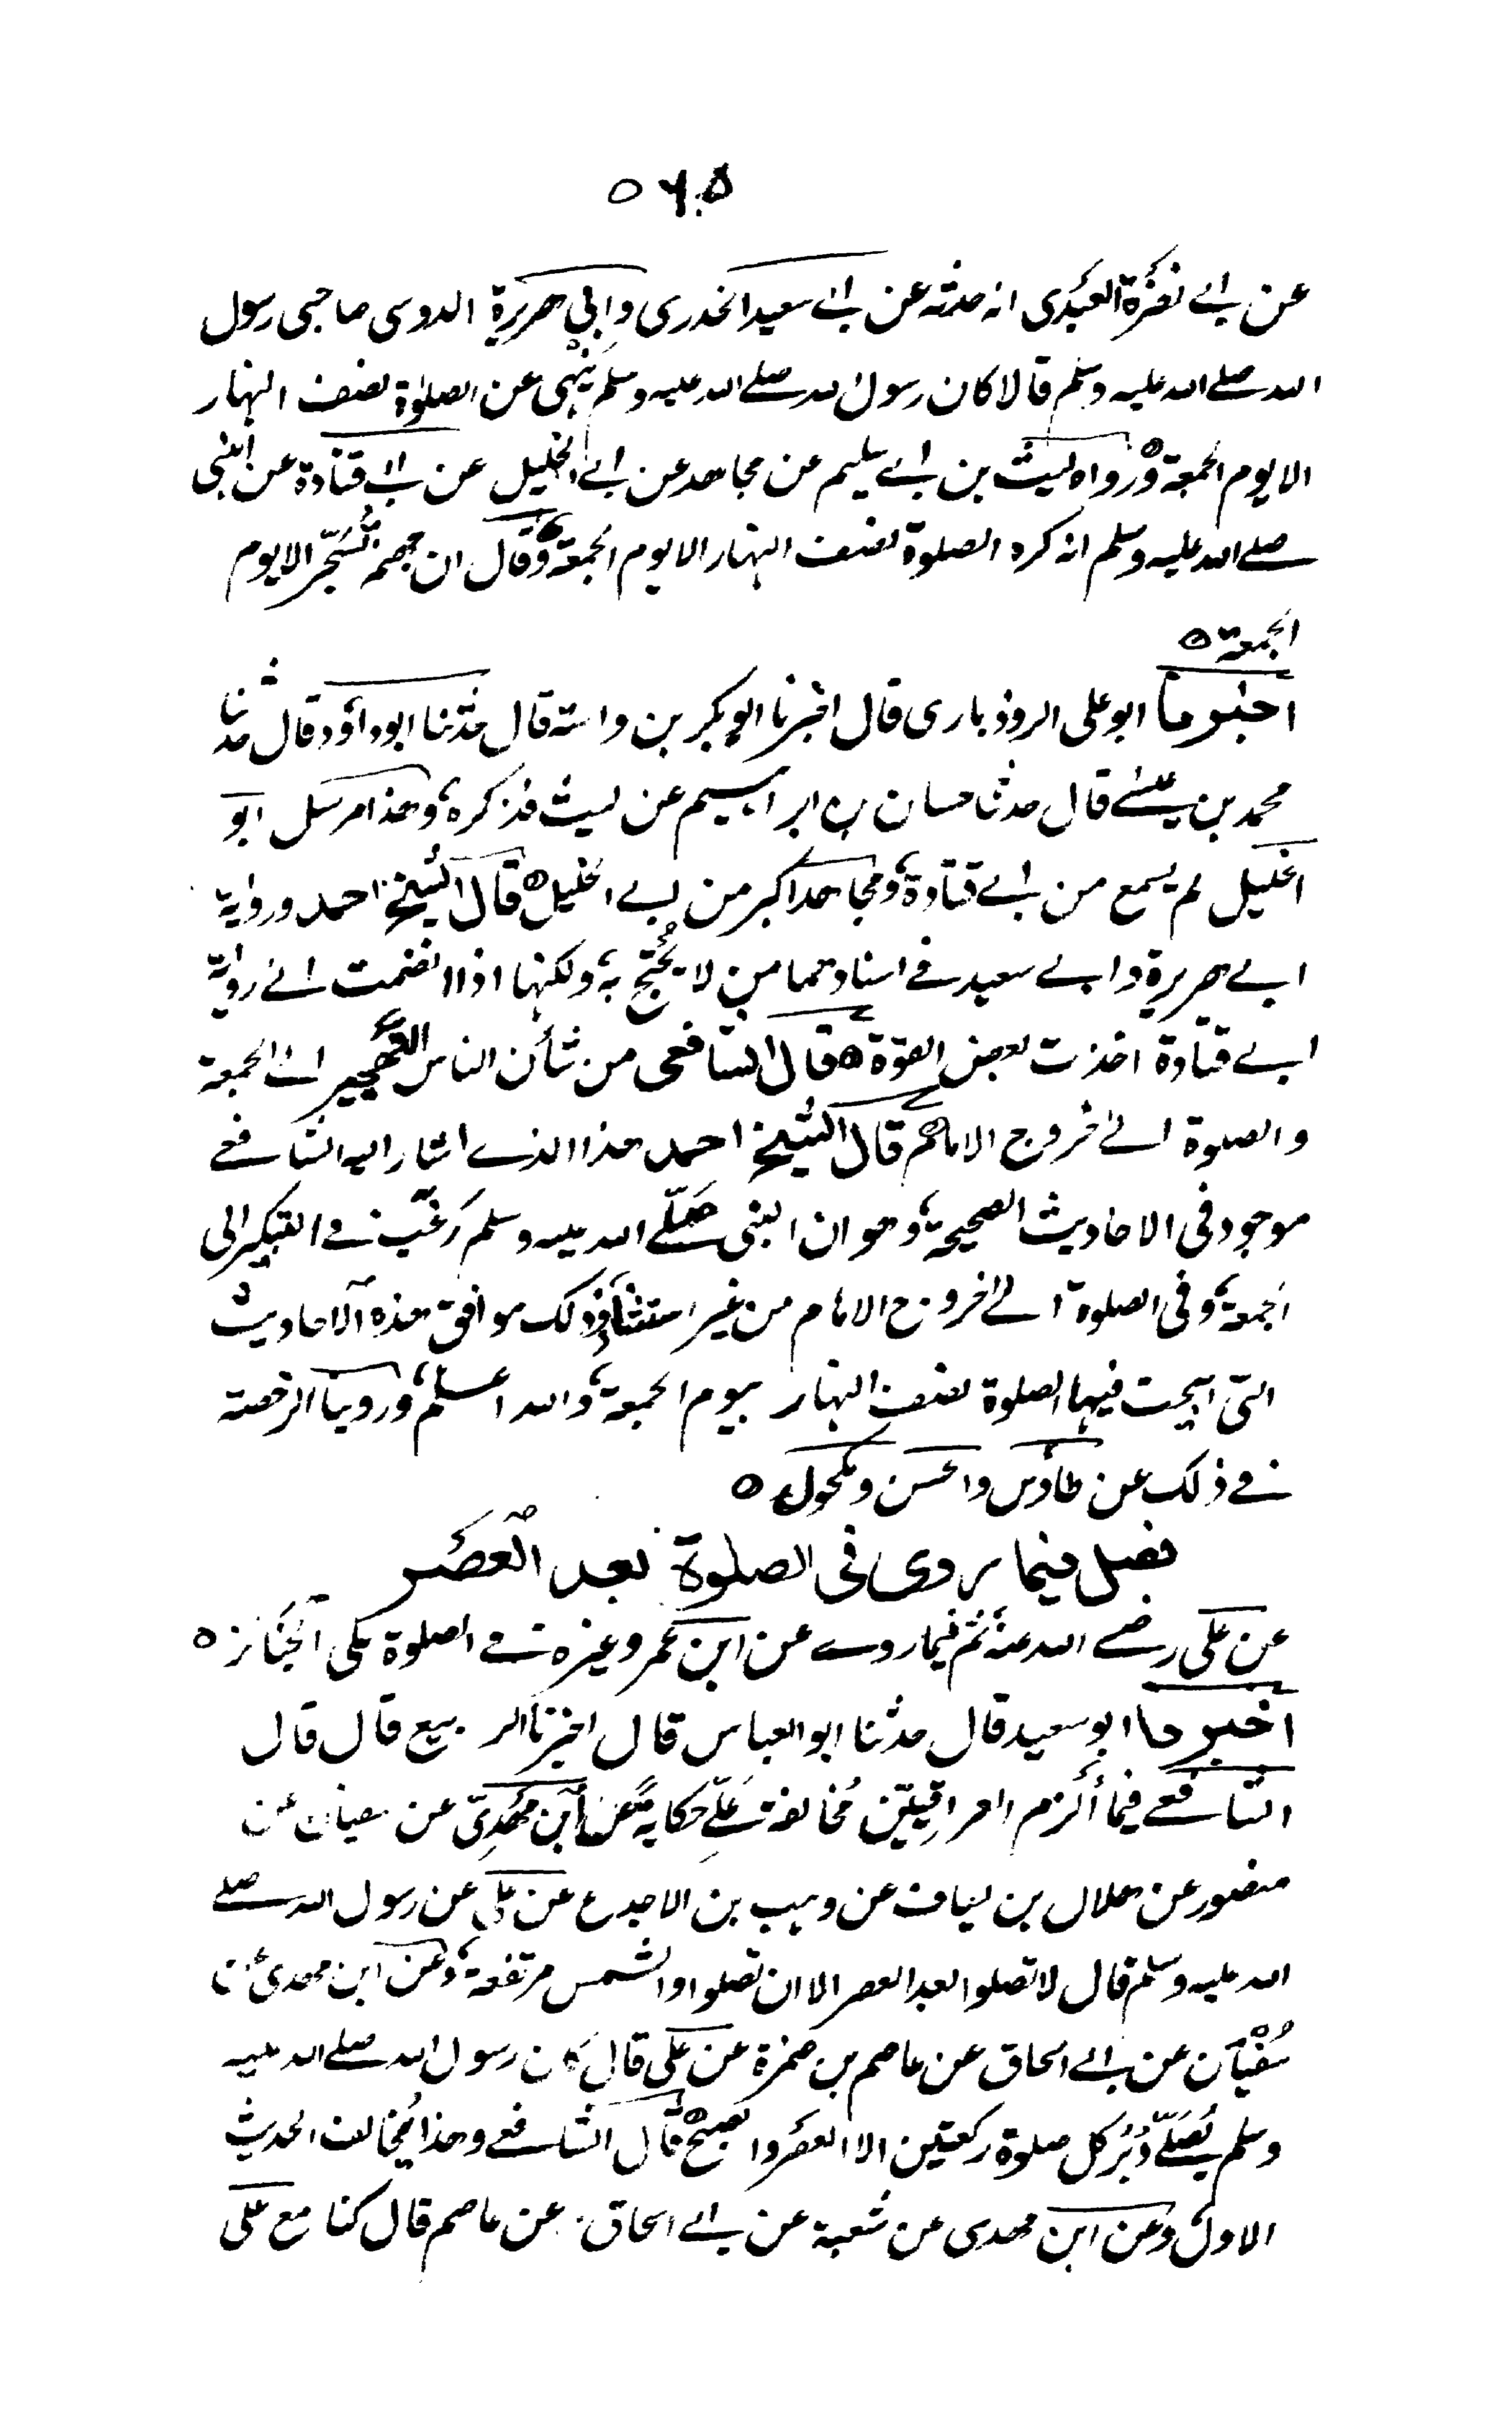 ٥٦٥
عن ابي نضرة العبدى انه حدثه عن ابي سعيد الخدرى وابي هريرة الدوسى صاحبى رسول
الله صلى الله عليه وسلم قالا كان رسول الله صلى الله عليه وسلم ينهى عن الصلوة نصف النهار
الا يوم الجمعة ورواه ليث بن ابي سليم عن مجاهد عن ابي الخليل عن ابي قتادة عن النبي
صلى الله عليه وسلم انه كره الصلوة نصف النهار الا يوم الجمعة وقال ان جهنم تُسَجّر الا يوم
الجمعة ٥
اخبرنا ابو على الروذبارى قال اخبرنا ابو بكر بن داسة قال حدثنا ابو داؤد قال حدثنا
محمد بن عيسى قال حدثنا حسان بن ابراهيم عن ليث فذكره، وهذا مرسل ابو
الخليل لم يسمع من ابي قتادة، ومجاهد اكبر من ابي الخليل ٥ قال الشيخ احمد ورواية
ابي هريرة وابي سعيد في اسنادهما من لا يُحْتج به، ولكنها اذا انضمت الى رواية
ابي قتادة اخذت بعض القوّة ٥ قال الشافعى من شأن الناس التهجير الى الجمعة
والصلوة الى خروج الامام ٥ قال الشيخ احمد هذا الذي اشار اليه الشافعي
موجود فى الاحاديث الصحيحة، وهو ان النبى صَلّى الله عليه وسلم رَغَّب في التبكير الى
الجمعة، وفى الصلوة الى خروج الامام من غير استثناء، وذلك موافق هذه الاحاديث
التى ابيحت فيها الصلوة نصف النهار يوم الجمعة، والله اعلم، وروينا الرخصة
في ذلك عن طاؤس والحسن ومكحول ٥
فصل فيما يروى فى الصلوة بعد العصر
عن على رضي الله عنه ثم فيما روي عن ابن عمر وغيره في الصلوة على الجنائز ٥
اخبرنا ابو سعيد قال حدثنا ابو العباس قال اخبرنا الربيع قال قال
الشافعي فيما أَلزم العراقِيّين مُخالفة عَلِيّ حكايةً عن ابن مَهْدِىّ عن سفيان عن
منصور عن هلال بن يساف عن وهب بن الاجدع عن على عن رسول الله صلى
الله عليه وسلم قال لا تصلوا بعد العصر الا ان تصلوا والشمس مرتفعة، وعن ابن مهدى عن
سُفْيَان عن ابي اسحاق عن عاصم بن ضمرة عن على قال كان رسول الله صلى الله عليه
وسلم يُصَلّي دُبُرَ كل صلوة ركعتين الا العصر والصبح ٥ قال الشافعي وهذا يُخالف الحديث
الاول، وعن ابن مهدى عن شعبة عن ابي اسحاق عن عاصم قال كنا مع على